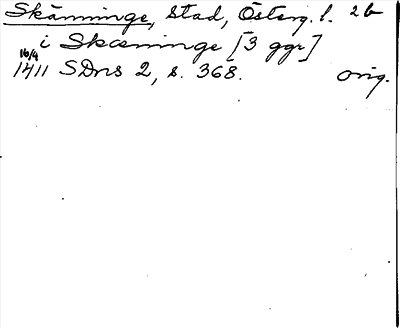 Skänninge, stad, Österg. l. 2b
i Skæninge [3 ggr]
16/9 1411 SDns 2, s. 368. orig.